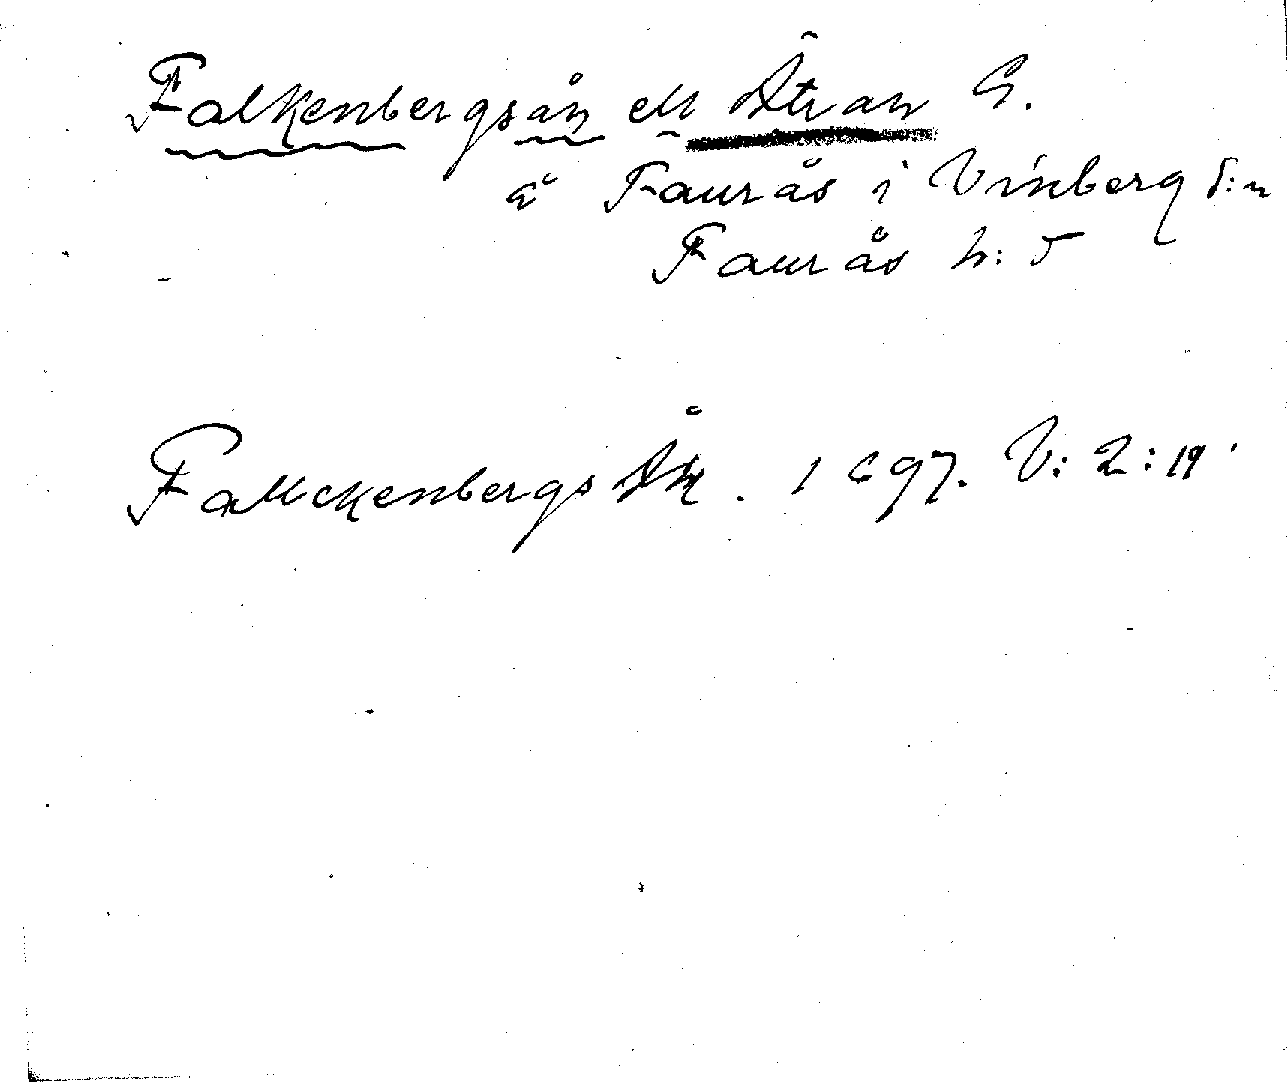 Falkenbergsån ell Ätran G.
å Faurås i Vinberg s:n
Faurås h: T
Fallckenbergs Åhn. 1697. V: 2: 19